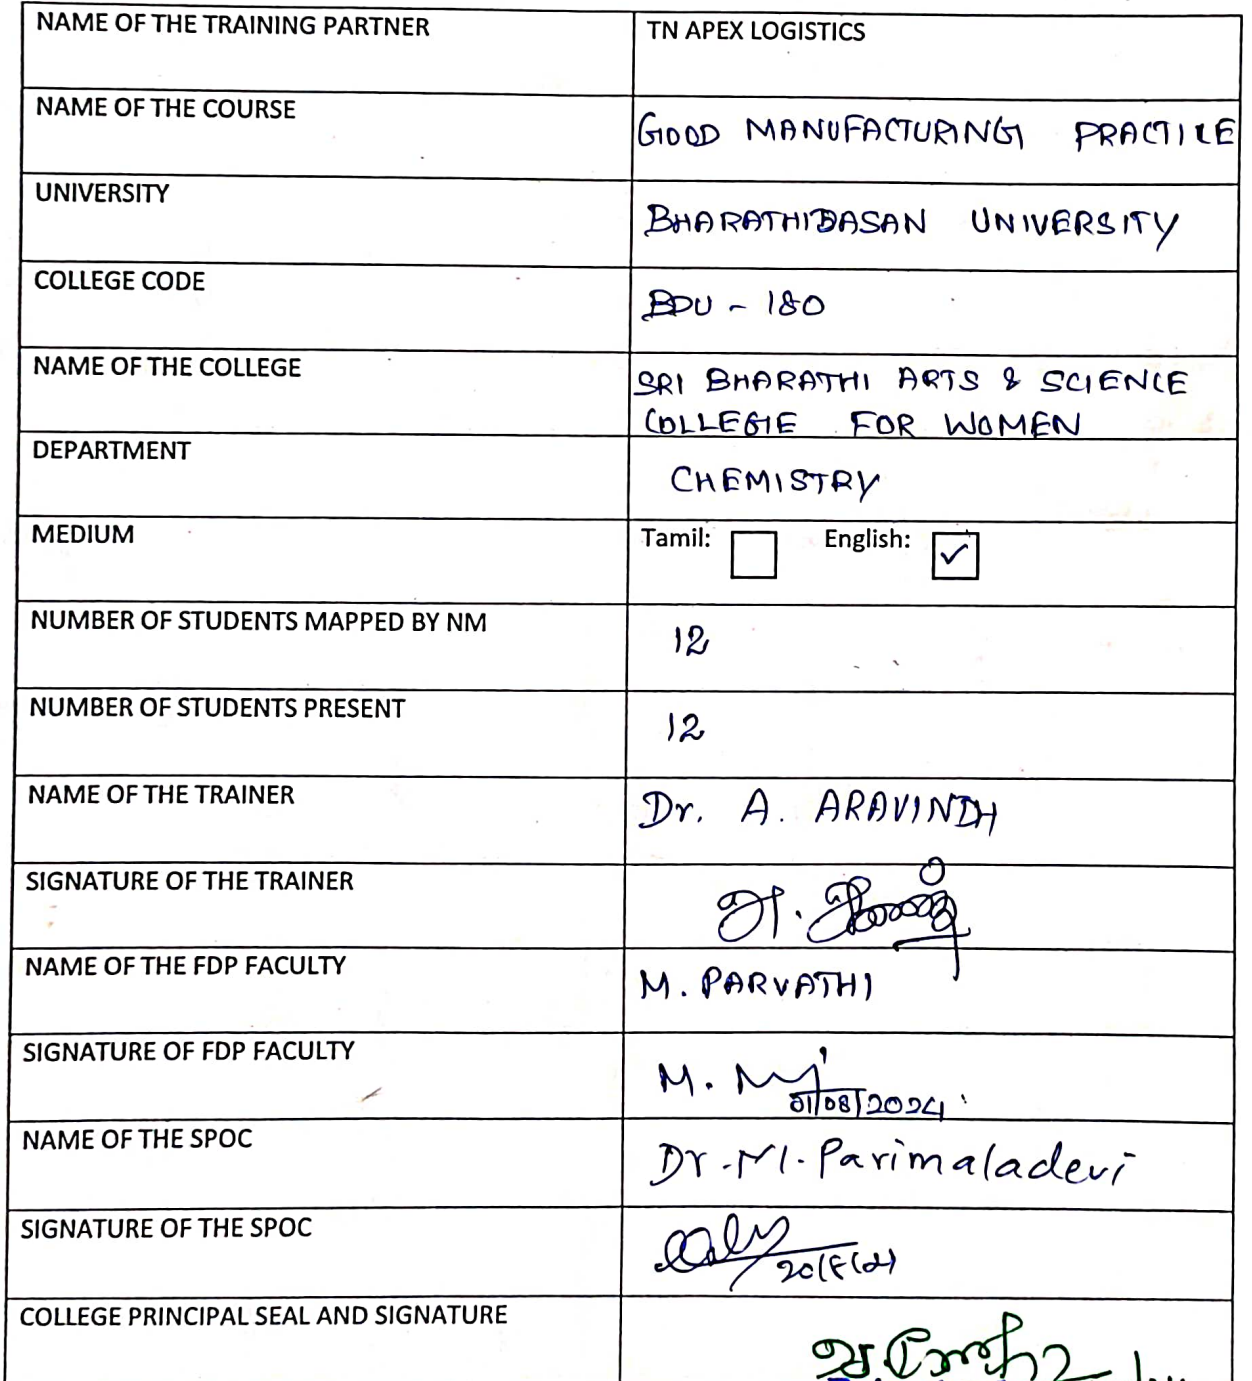 NAME OF THE TRAINING PARTNER TN APEX LOGISTICS
NAME OF THE COURSE GOOD MANUFACTURING PRACTICE
UNIVERSITY BHARATHIDASAN UNIVERSITY
COLLEGE CODE BDU - 180
NAME OF THE COLLEGE SRI BHARATHI ARTS & SCIENCE
COLLEGE FOR WOMEN
DEPARTMENT CHEMISTRY
MEDIUM Tamil: English: ✓
NUMBER OF STUDENTS MAPPED BY NM 12
NUMBER OF STUDENTS PRESENT 12
NAME OF THE TRAINER Dr. A. ARAVINDH
SIGNATURE OF THE TRAINER
NAME OF THE FDP FACULTY M. PARVATHI
SIGNATURE OF FDP FACULTY M.
01/08/2024
NAME OF THE SPOC Dr. M. Parimaladevi
SIGNATURE OF THE SPOC
COLLEGE PRINCIPAL SEAL AND SIGNATURE